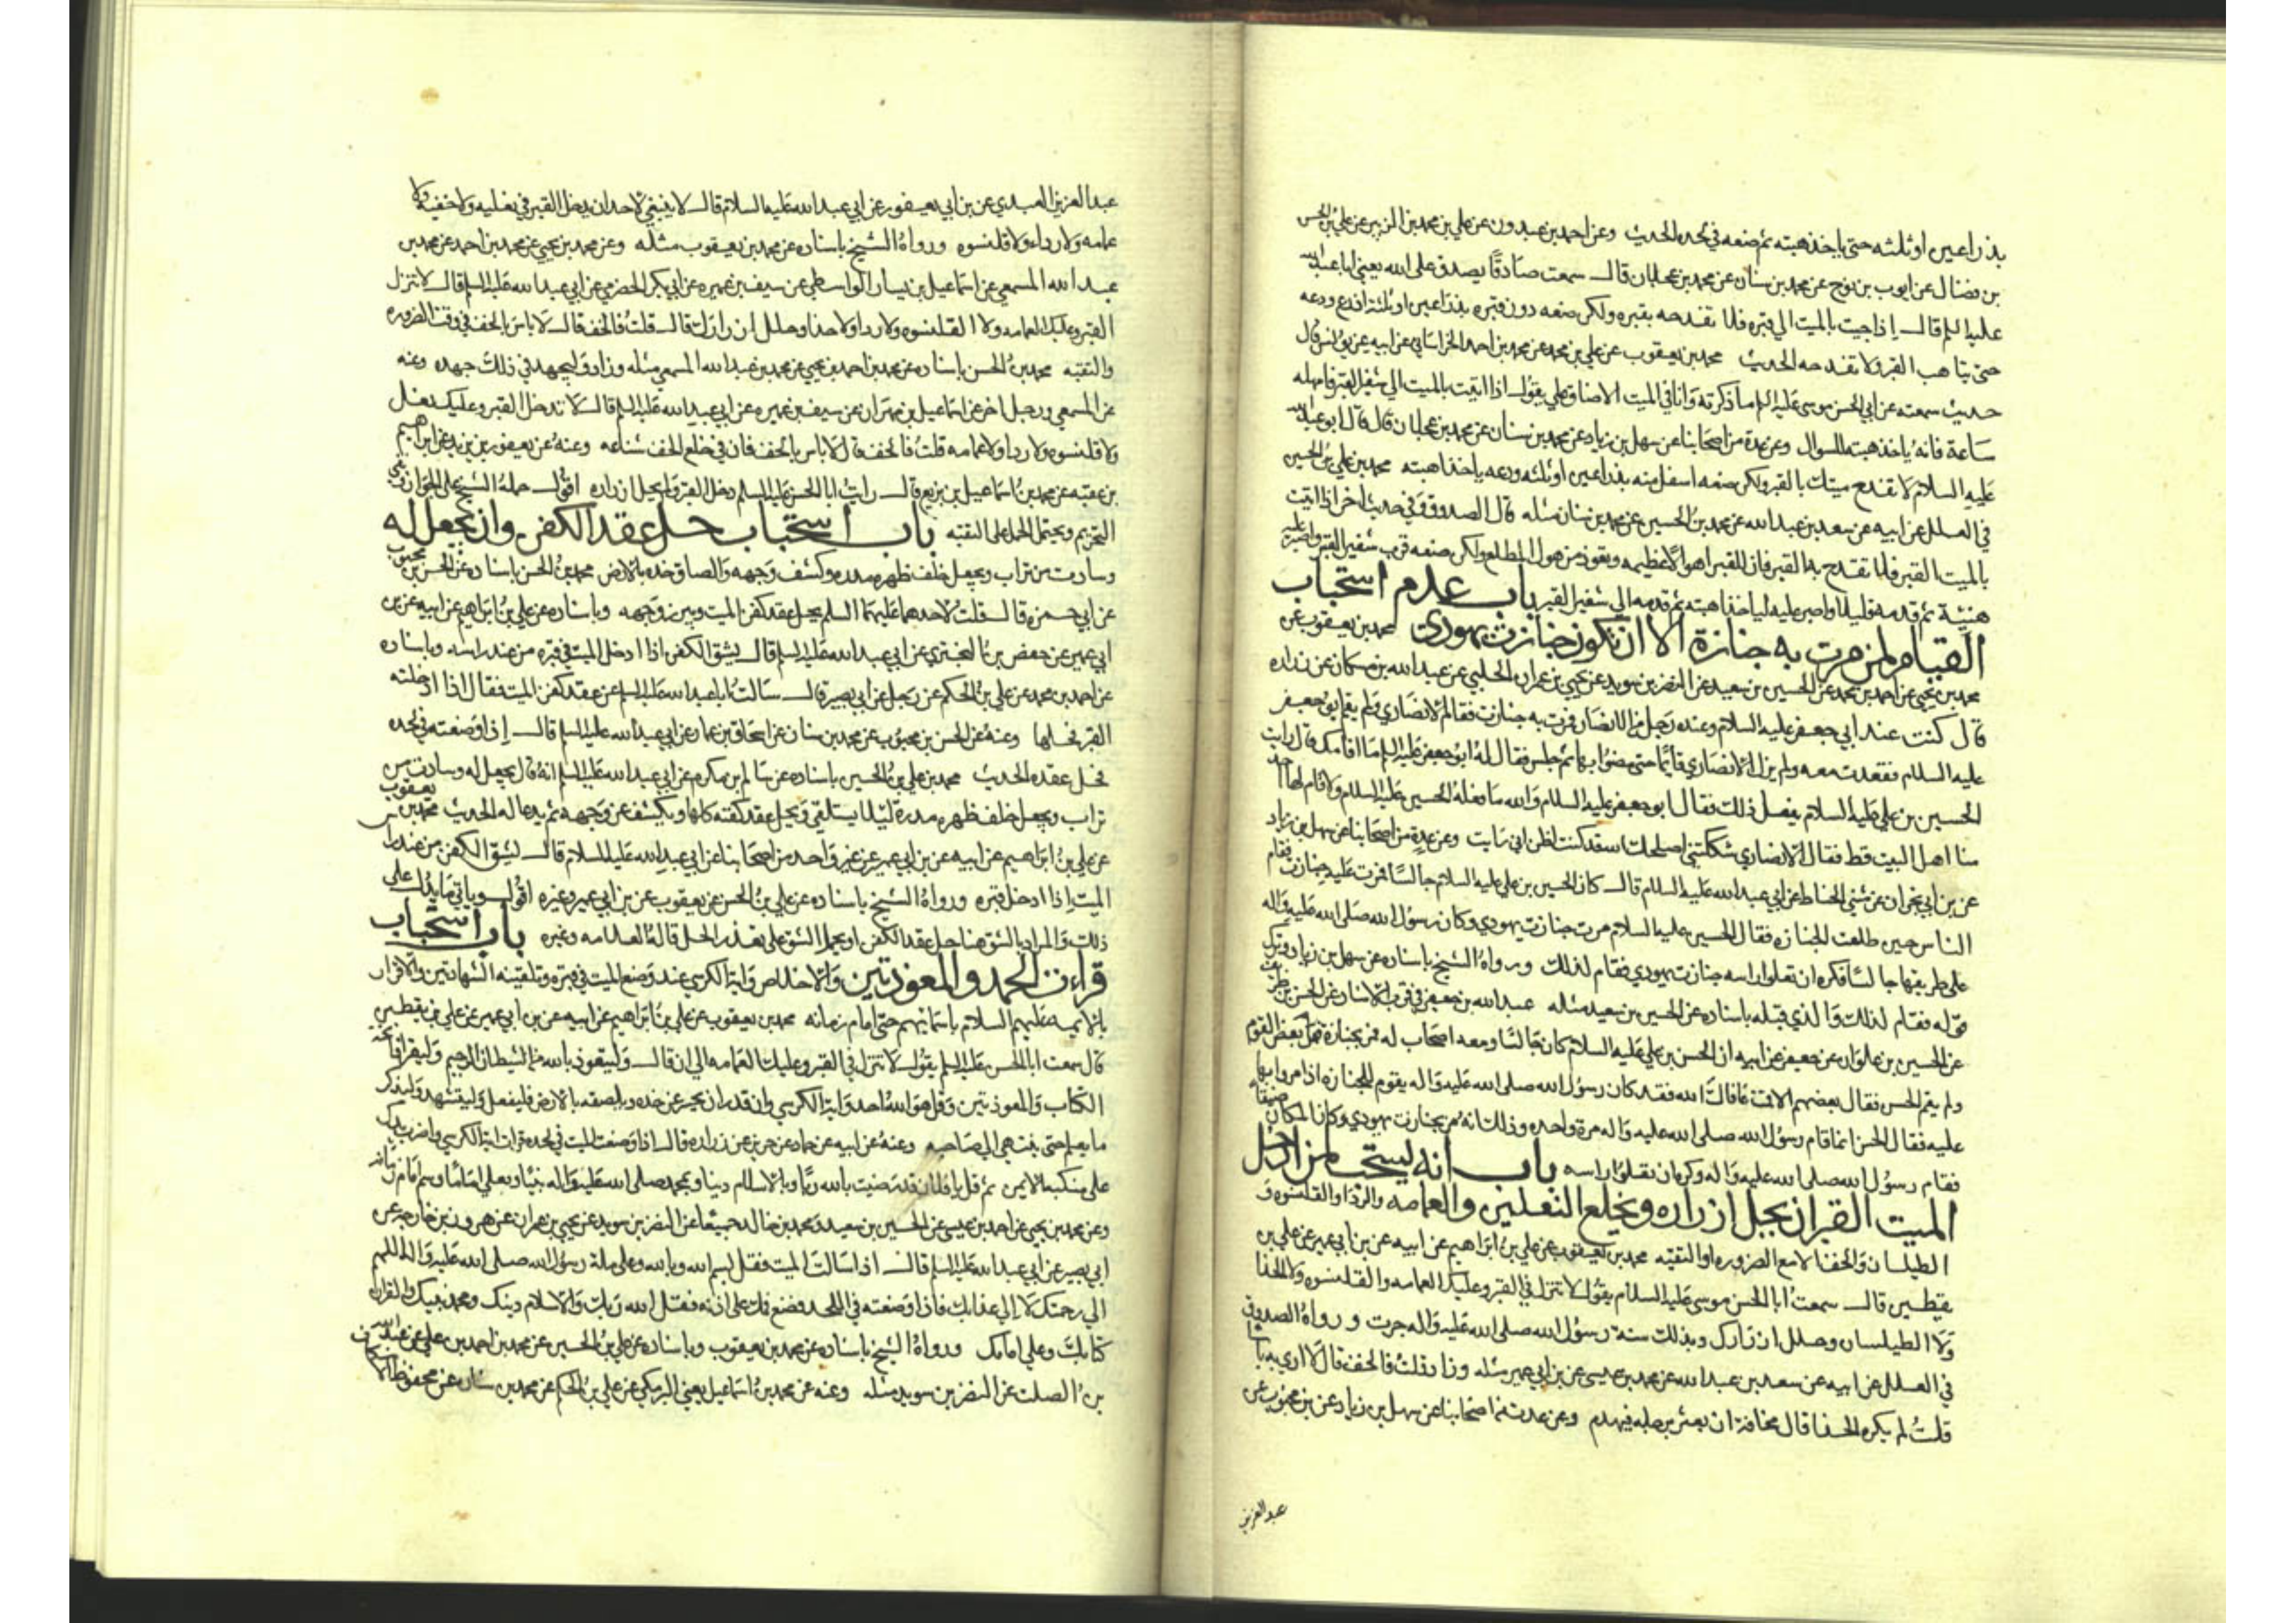 بذراعين او ثلثه حتى ياخذ اهبته ثم ضعه في لحده الحديث وعن احمد بن عبدون عن علي بن محمد بن الزبير عن علي بن الحسن
بن فضال عن ايوب بن نوح عن محمد بن سنان عن محمد بن عجلان قال سمعت صادقا يصدق على الله يعني ابا عبد الله
عليه السلم قال اذا جيت بالميت الي قبره فلا تفدحه بقبره ولكن ضعه دون قبره بذراعين او ثلثة اذرع ودعه
حتى يتاهب القبر ولا تفدحه الحديث محمد بن يعقوب عن علي بن محمد عن محمد بن احمد الخراساني عن ابيه عن يونس قال
حديث سمعته عن ابي الحسن موسى عليه السلم ما ذكرته وانا في بيت الا ضاق علي يقول اذا اتيت بالميت الي شفير القبر فامهله
ساعة فانه ياخذ اهبته للسوال وعن عدة من اصحابنا عن سهل بن زياد عن محمد بن سنان عن محمد بن عجلان قال قال ابو عبد الله
عليه السلام لا تفدح ميتك بالقبر ولكن ضعه اسفل منه بذراعين او ثلثه ودعه ياخذ اهبته محمد بن علي بن الحسين
في العلل عن ابيه عن سعد بن عبد الله عن محمد بن الحسين عن محمد بن سنان مثله قال الصدوق وفي حديث اخر اذا اتيت
بالميت القبر فلا تفدح به القبر فان للقبر اهوالا عظيمه وتعوذ من هول المطلع ولكن ضعه قرب شفير القبر واصبر عليه
هنيئة ثم قدمه قليلا واصبر عليه لياخذ اهبته ثم قدمه الي شفير القبر باب عدم استحباب
القيام لمن مرت به جنازة الا ان تكون جنازت يهودي محمد بن يعقوب عن
محمد بن يحيى عن احمد بن محمد عن الحسين بن سعيد عن النضر بن سويد عن يحيي بن عمران الحلبي عن عبد الله بن مسكان عن زراره
قال كنت عند ابي جعفر عليه السلام وعنده رجل من الانصار فمرت به جنازت فقام الانصاري ولم يقم ابو جعفر
عليه السلام فقعدت معه ولم يزل الانصاري قايما حتى مضوا بها ثم جلس فقال له ابو جعفر عليه السلم ما اقامك قال رايت
الحسين بن علي عليه السلام يفعل ذلك فقال ابو جعفر عليه السلام والله ما فعله الحسين عليه السلام ولا قام لها احد
منا اهل البيت قط فقال الانصاري شككتني اصلحك الله قد كنت اظن اني رايت وعن عدة من اصحابنا عن سهل بن زياد
عن بن ابي نجران عن مثني الحناط عن ابي عبد الله عليه السلام قال كان الحسين بن علي عليه السلام جالسا فمرت عليه جنازت فقام
الناس حين طلعت الجنازه فقال الحسين عليه السلام مرت جنازت يهودي وكان رسول الله صلى الله عليه واله
على طريقها جالسا فكره ان تعلوا راسه جنازت يهودي فقام لذلك ورواه الشيخ باسناده عن سهل بن زياد وترك
قوله فقام لذلك والذي قبله باسناده عن الحسين بن سعيد مثله عبد الله بن جعفر في قرب الاسناد عن الحسن بن ظريف
عن الحسين بن علوان عن جعفر عن ابيه ان الحسن بن علي عليه السلام كان جالسا ومعه اصحاب له فمر بجنازة فقام بعض القوم
ولم يقم الحسن فقال بعضهم الا قمت عافاك الله فقد كان رسول الله صلى الله عليه واله يقوم للجنازه اذا مروا بها
عليه فقال الحسن انما قام رسول الله صلى الله عليه واله مرة واحده وذلك انه مر بجنازت يهودي وكان المكان ضيقا
فقام رسول الله صلى الله عليه واله وكره ان تعلوا راسه باب انه يستحب لمن ادخل
الميت القبر ان يحل ازراره ويخلع النعلين والعمامه والردا والقلنسوه و
الطيلسان والخف الا مع الضروره او التقيه محمد بن يعقوب عن علي بن ابراهيم عن ابيه عن بن ابي عمير عن علي بن
يقطين قال سمعت ابا الحسن موسى عليه السلام يقول لا تنزل في القبر وعليك العمامه والقلنسوه ولا الحذا
ولا الطيلسان وحلل ازرارك وبذلك سنة رسول الله صلى الله عليه واله جرت ورواه الصدوق
في العلل عن ابيه عن سعد بن عبد الله عن محمد بن عيسى عن بن ابي عمير مثله وزاد قلت فالخف قال لا اري به باسا
قلت لم يكره الحذا قال مخافة ان يعثر برجله فيهدم وعن عدت من اصحابنا عن سهل بن زياد عن بن محبوب عن
عبد العزيز
عبد العزيز العبدي عن بن ابي يعفور عن ابي عبد الله عليه السلام قال لا ينبغي لاحد ان يدخل القبر في نعليه ولا خفيه ولا
عمامه ولا رداء ولا قلنسوه ورواه الشيخ باسناده عن محمد بن يعقوب مثله وعن محمد بن يحيي عن محمد بن احمد عن محمد بن
عبد الله المسمعي عن اسماعيل بن يسار الواسطي عن سيف بن عميره عن ابي بكر الحضرمي عن ابي عبد الله عليه السلم قال لا تنزل
القبر وعليك العمامه ولا القلنسوه ولا ردا ولا حذا وحلل ازرارك قال قلت فالخف قال لا باس بالخف في وقت الضروره
والتقيه محمد بن الحسن باسناده عن محمد بن احمد بن يحيي عن محمد بن عبد الله المسمعي مثله وزاد وليجهد في ذلك جهده وعنه
عن المسمعي ورجل اخر عن اسماعيل بن مهران عن سيف بن عميره عن ابي عبد الله عليه السلم قال لا تدخل القبر وعليك نعل
ولا قلنسوه ولا ردا ولا عمامه قلت فالخف قال لا باس بالخف فان في خلع الخف شناعه وعنه عن يعقوب بن يزيد عن ابراهيم
بن عقبه عن محمد بن اسماعيل بن بزيع قال رايت ابا الحسن عليه السلم دخل القبر ولم يحل ازراره اقول حمله الشيخ علي الجواز ونفي
التحريم ويحتمل الحمل على التقيه باب استحباب حل عقد الكفن وان يجعل له
وسادت من تراب ويجعل خلف ظهره مدره وكشف وجهه والصاق خده بالارض محمد بن الحسن باسناده عن الحسن بن محبوب
عن ابي حمزه قال قلت لاحدهما عليهما السلم يحل عقد كفن الميت ويبرز وجهه وباسناده عن علي بن ابراهيم عن ابيه عن بن
ابي عمير عن حفص بن البختري عن ابي عبد الله عليه السلم قال يشق الكفن اذا ادخل الميت في قبره من عند راسه وباسناده
عن احمد بن محمد عن علي بن الحكم عن رجل عن ابي بصير قال سالت ابا عبد الله عليه السلم عن عقد كفن الميت فقال اذا ادخلته
القبر فحلها وعنه عن الحسن بن محبوب عن محمد بن سنان عن اسحاق بن عمار عن ابي عبد الله عليه السلم قال اذا وضعته في لحده
فحل عقده الحديث محمد بن علي بن الحسين باسناده عن سالم بن مكرم عن ابي عبد الله عليه السلم انه قال يجعل له وسادت من
تراب ويجعل خلف ظهره مدرة ليلا يستلقي ويحل عقد كفنه كلها ويكشف عن وجهه ثم يدعا له الحديث محمد بن يعقوب
عن علي بن ابراهيم عن ابيه عن بن ابي عمير عن غير واحد من اصحابنا عن ابي عبد الله عليه السلام قال يشق الكفن من عند راس
الميت اذا ادخل قبره ورواه الشيخ باسناده عن علي بن الحسن عن يعقوب عن بن ابي عمير وغيره اقول وياتي ما يدل علي
ذلك والمراد بالشق هنا حل عقد الكفن او يحمل الشق على تعذر الحل قاله العلامه وغيره باب استحباب
قراءت الحمد والمعوذتين والاخلاص واية الكرسي عند وضع الميت في قبره وتلقينه الشهادتين والاقرار
بالايمه عليهم السلام باسمائهم حتى امام زمانه محمد بن يعقوب عن علي بن ابراهيم عن ابيه عن بن ابي عمير عن علي بن يقطين
قال سمعت ابا الحسن عليه السلم يقول لا تنزل في القبر وعليك العمامه الي ان قال وليتعوذ بالله من الشيطان الرجيم وليقرا فاتحة
الكتاب والمعوذتين وقل هو الله احد واية الكرسي وان قدر ان يحسر عن خده ويلصقه بالارض فليفعل وليتشهد وليذكر
ما يعلم حتى ينتهي الي صاحبه وعنه عن ابيه عن حماد عن حريز عن زراره قال اذا وضعت الميت في لحده قرات اية الكرسي واضرب يدك
على منكبه الايمن ثم قل يا فلان قل رضيت بالله ربا وبالاسلام دينا وبمحمد صلى الله عليه واله نبيا وبعلي اماما وسم امام زمانه
وعن محمد بن يحيي عن احمد بن عيسى عن الحسين بن سعيد ومحمد بن خالد جميعا عن النضر بن سويد عن يحيي بن عمران عن هرون بن خارجه عن
ابي بصير عن ابي عبد الله عليه السلم قال اذا سللت الميت فقل بسم الله وبالله وعلى ملة رسول الله صلى الله عليه واله اللهم
الي رحمتك لا الي عذابك فاذا وضعته في اللحد فضع فمك على اذنه فقل الله ربك والاسلام دينك ومحمد نبيك والقران
كتابك وعلي امامك ورواه الشيخ باسناده عن محمد بن يعقوب وباسناده عن علي بن الحسين عن محمد بن احمد بن علي عن عبد الله
بن الصلت عن النضر بن سويد مثله وعنه عن محمد بن اسماعيل يعني البرمكي عن علي بن الحكم عن محمد بن سنان عن محفوظ الاسكاف